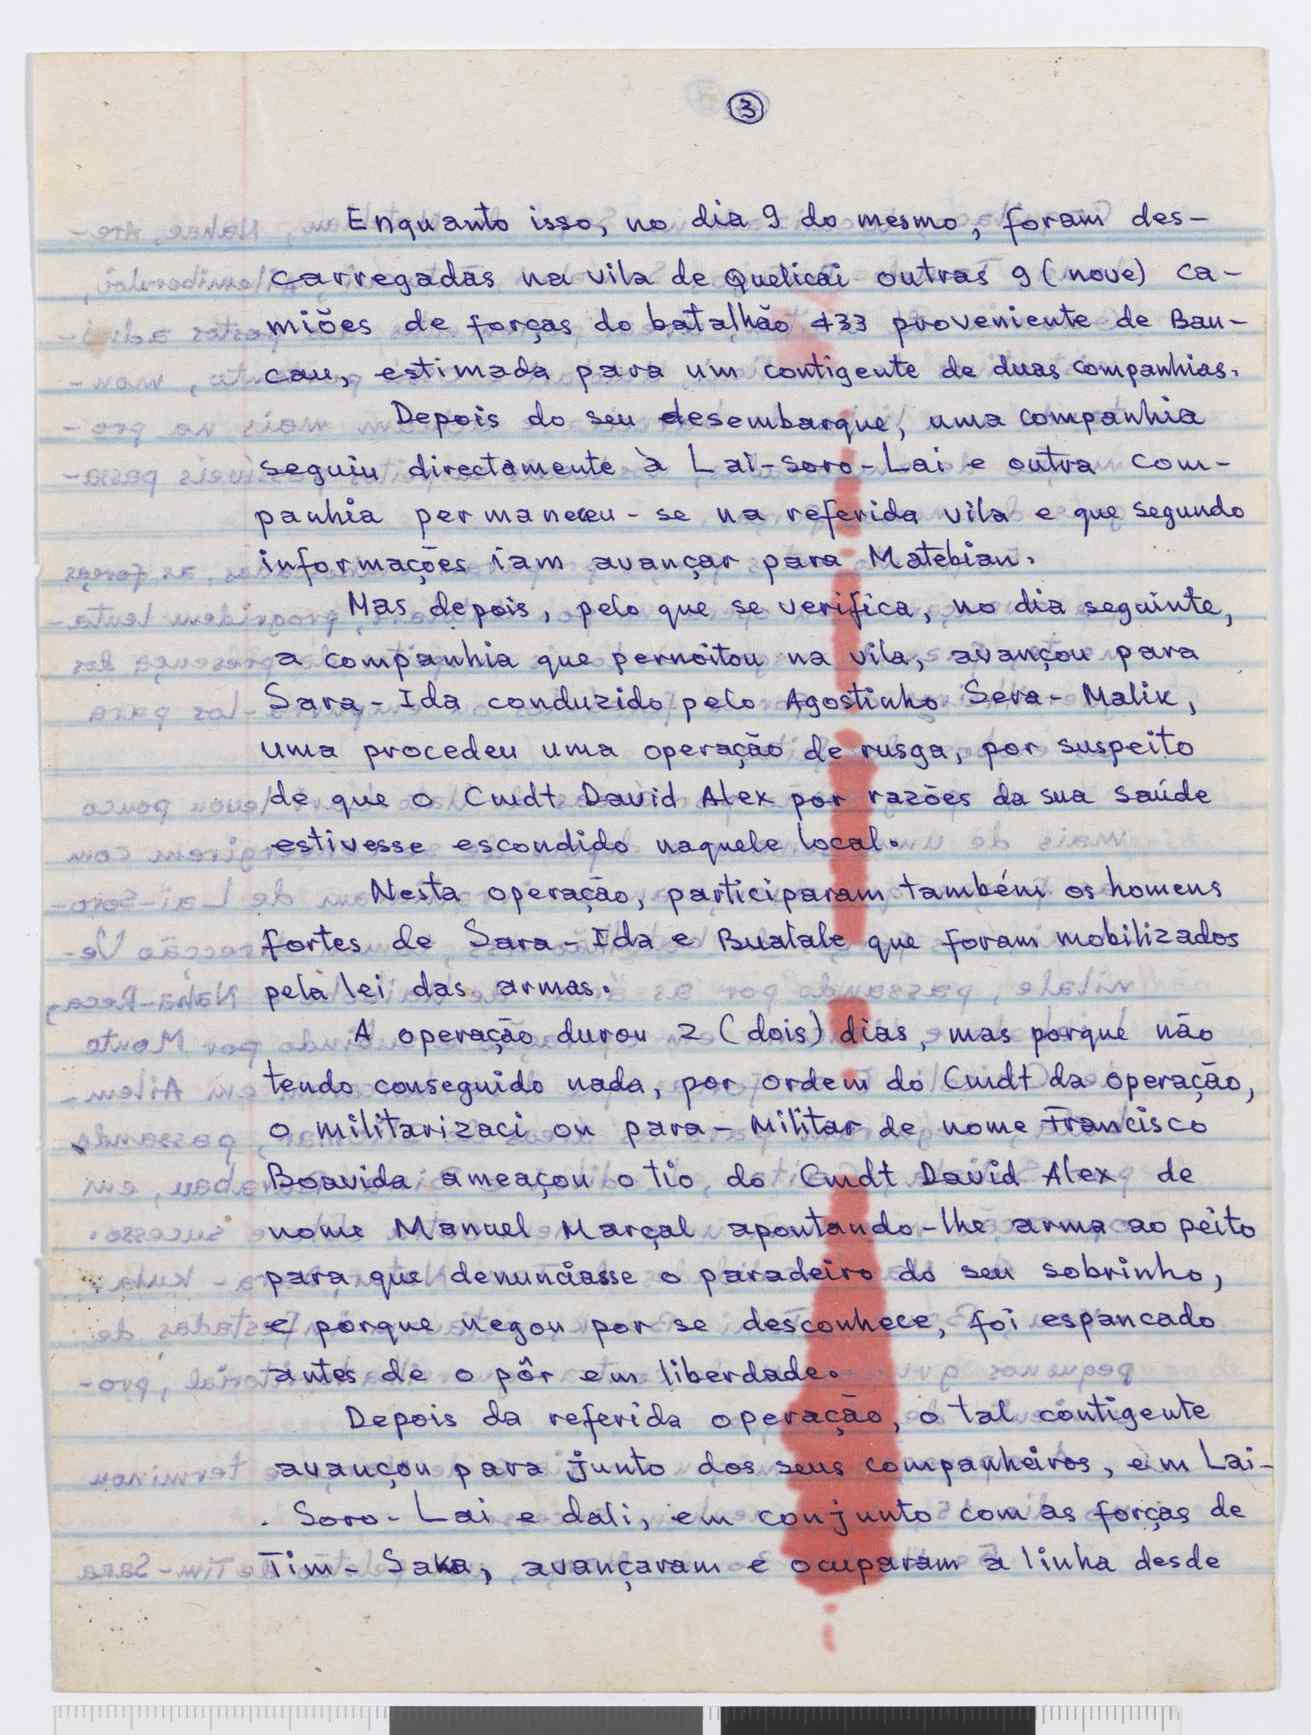 3
Enquanto isso, no dia 9 do mesmo, foram des-
carregadas na vila de Quelicai outras 9 (nove) ca-
miões de forças do batalhão 433 proveniente de Bau-
cau, estimada para um contigente de duas companhias.
Depois do seu desembarque, uma companhia
seguiu directamente à Lai-Soro-Lai e outra com-
panhia permaneceu-se na referida vila e que segundo
informações iam avançar para Matebian.
Mas depois, pelo que se verifica, no dia seguinte,
a companhia que pernoitou na vila, avançou para
Sara-Ida conduzido pelo Agostinho Sera-Malik,
uma procedeu uma operação de rusga, por suspeito
de que o Cmdt David Alex por razões da sua saúde
estivesse escondido naquele local.
Nesta operação, participaram também os homens
fortes de Sara-Ida e Bualale que foram mobilizados
pela lei das armas.
A operação durou 2 (dois) dias, mas porque não
tendo conseguido nada, por ordem do Cmdt da operação,
o militarizaci ou para-militar de nome Francisco
Boavida ameaçou o tio do Cmdt David Alex de
nome Manuel Marçal apontando-lhe arma ao peito
para que denunciasse o paradeiro do seu sobrinho,
e porque negou por se desconhece, foi espancado
antes de o pôr em liberdade.
Depois da referida operação, o tal contigente
avançou para junto dos seus companheiros, em Lai-
. Soro-Lai e dali, em conjunto com as forças de
Tim-Saka, avançaram e ocuparam a linha desde